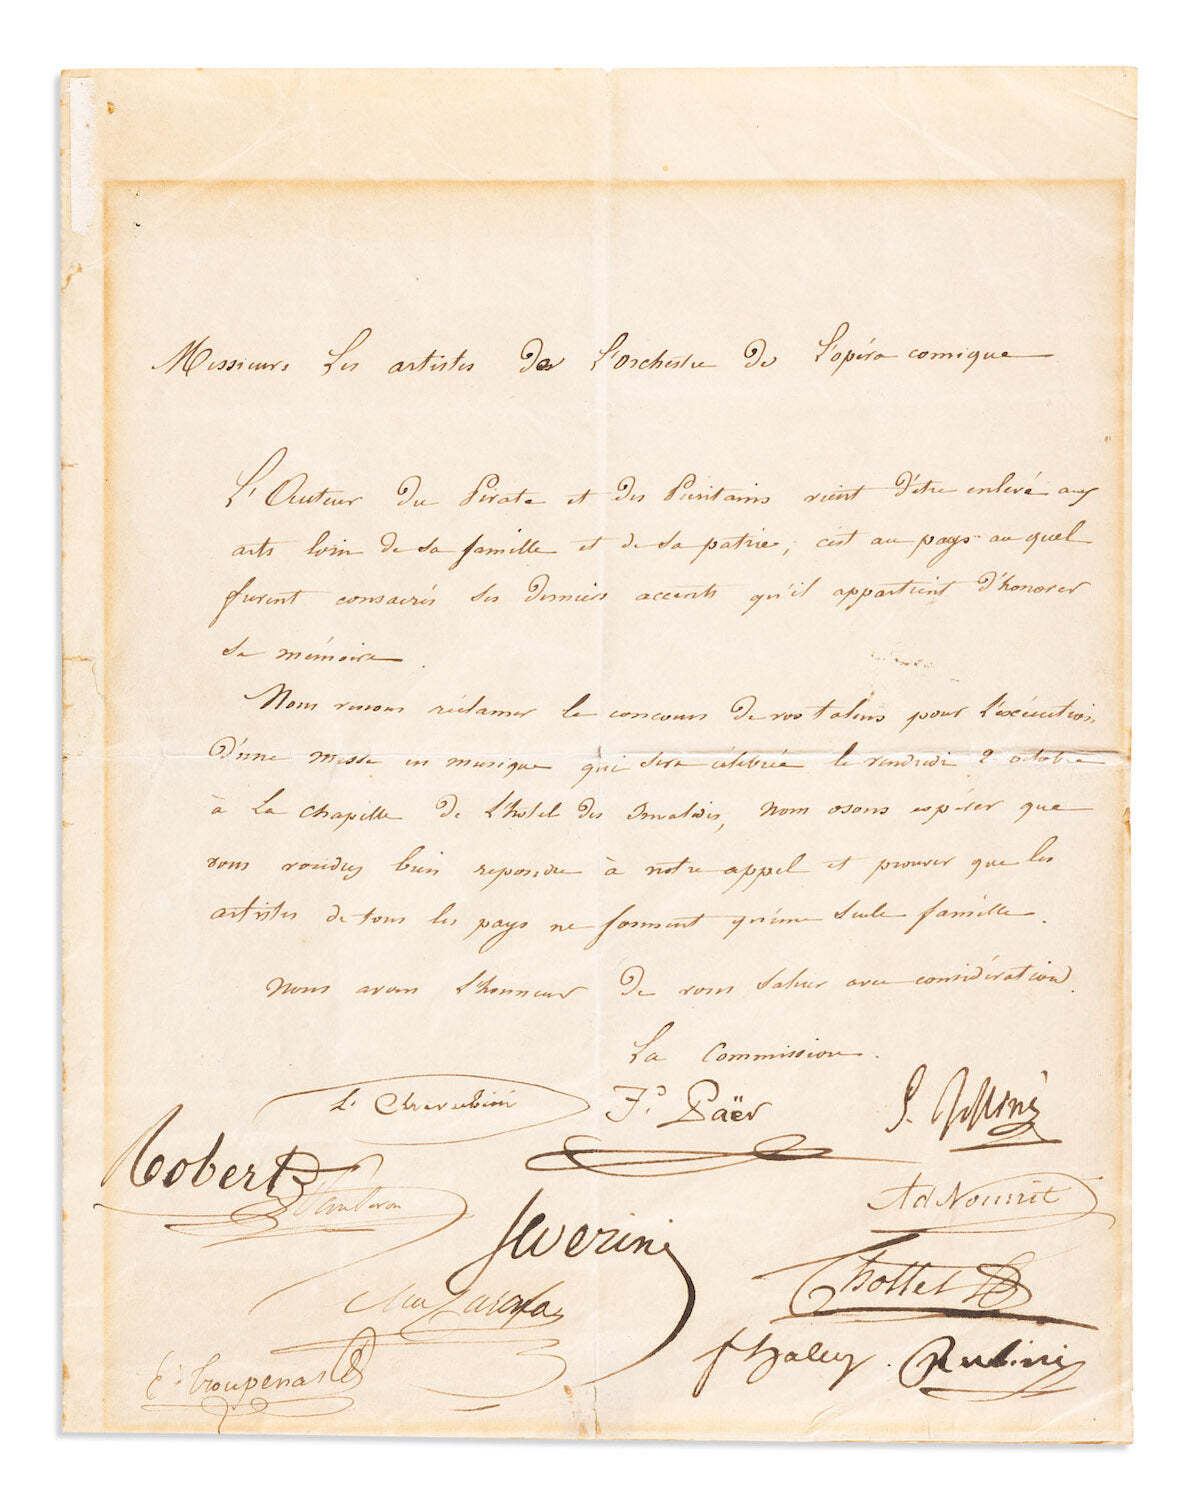 Messieurs Les artistes de L'orchestre de L'opéra comique
L'Auteur du Pirate et des Puritains vient d'être enlevé aux
arts loin de sa famille et de sa patrie, c'est au pays auquel
furent consacrés ses derniers accents qu'il appartient d'honorer
sa mémoire.
Nous venons réclamer le concours de vos talens pour l'exécution
d'une messe en musique qui sera célébrée le vendredi 2 octobre
à La chapelle de L'hôtel des invalides, nous osons espérer que
vous voudrez bien repondre à notre appel et prouver que les
artistes de tous les pays ne forment qu'une seule famille.
Nous avons L'honneur de vous saluer avec considération.
La Commission.
L. Cherubini F. Paër G. Rossini
Robert Panseron Ad Nourrit
Severini Chollet
Carafa
E. Troupenas f halevy. Rubini